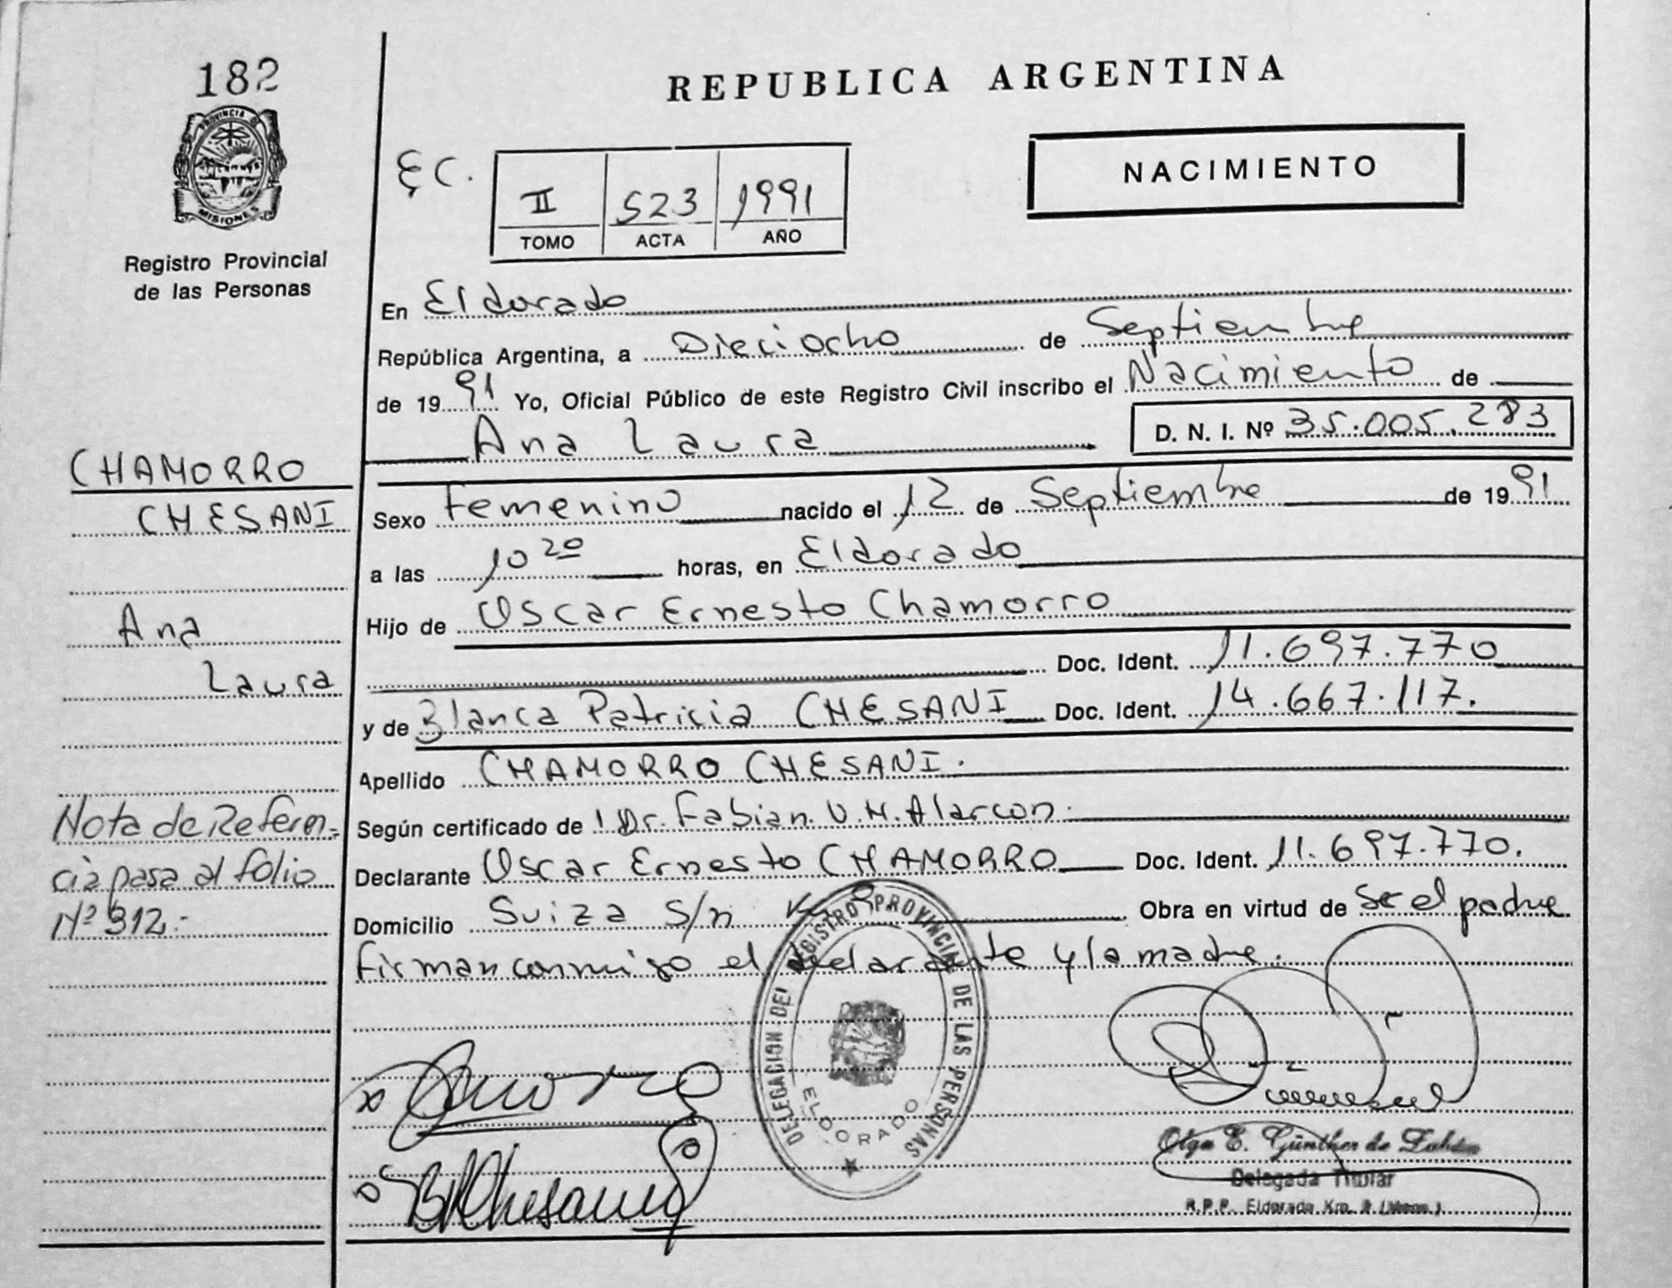 182
PROVINCIA D
MISIONES
Registro Provincial
de las Personas
REPUBLICA ARGENTINA
NACIMIENTO
II 523 1991
TOMO ACTA AÑO
En Eldorado
República Argentina, a Dieciocho de Septiembre
de 1991 Yo, Oficial Público de este Registro Civil inscribo el Nacimiento de
Ana Laura D. N. I. Nº 35.005.283
CHAMORRO
CHESANI
Ana
Laura
Sexo Femenino nacido el 12 de Septiembre de 1991
a las 10 20 horas, en Eldorado
Hijo de Oscar Ernesto Chamorro
Doc. Ident. 11.697.770
y de Blanca Patricia CHESANI Doc. Ident. 14.667.117.
Apellido CHAMORRO CHESANI.
Nota de Referen=
cia pasa al folio
Nº 312.-
Según certificado de Dr. Fabian. V. H. Alarcon.
Declarante Oscar Ernesto CHAMORRO Doc. Ident. 11.697.770.
Domicilio Suiza S/n Obra en virtud de Ser el padre
firman conmigo el declarante y la madre.
DELEGACION DEL REGISTRO PROVINCIAL DE LAS PERSONAS
ELDORADO
Olga E. Günther de
Delegada Titular
R.P.P. Eldorado